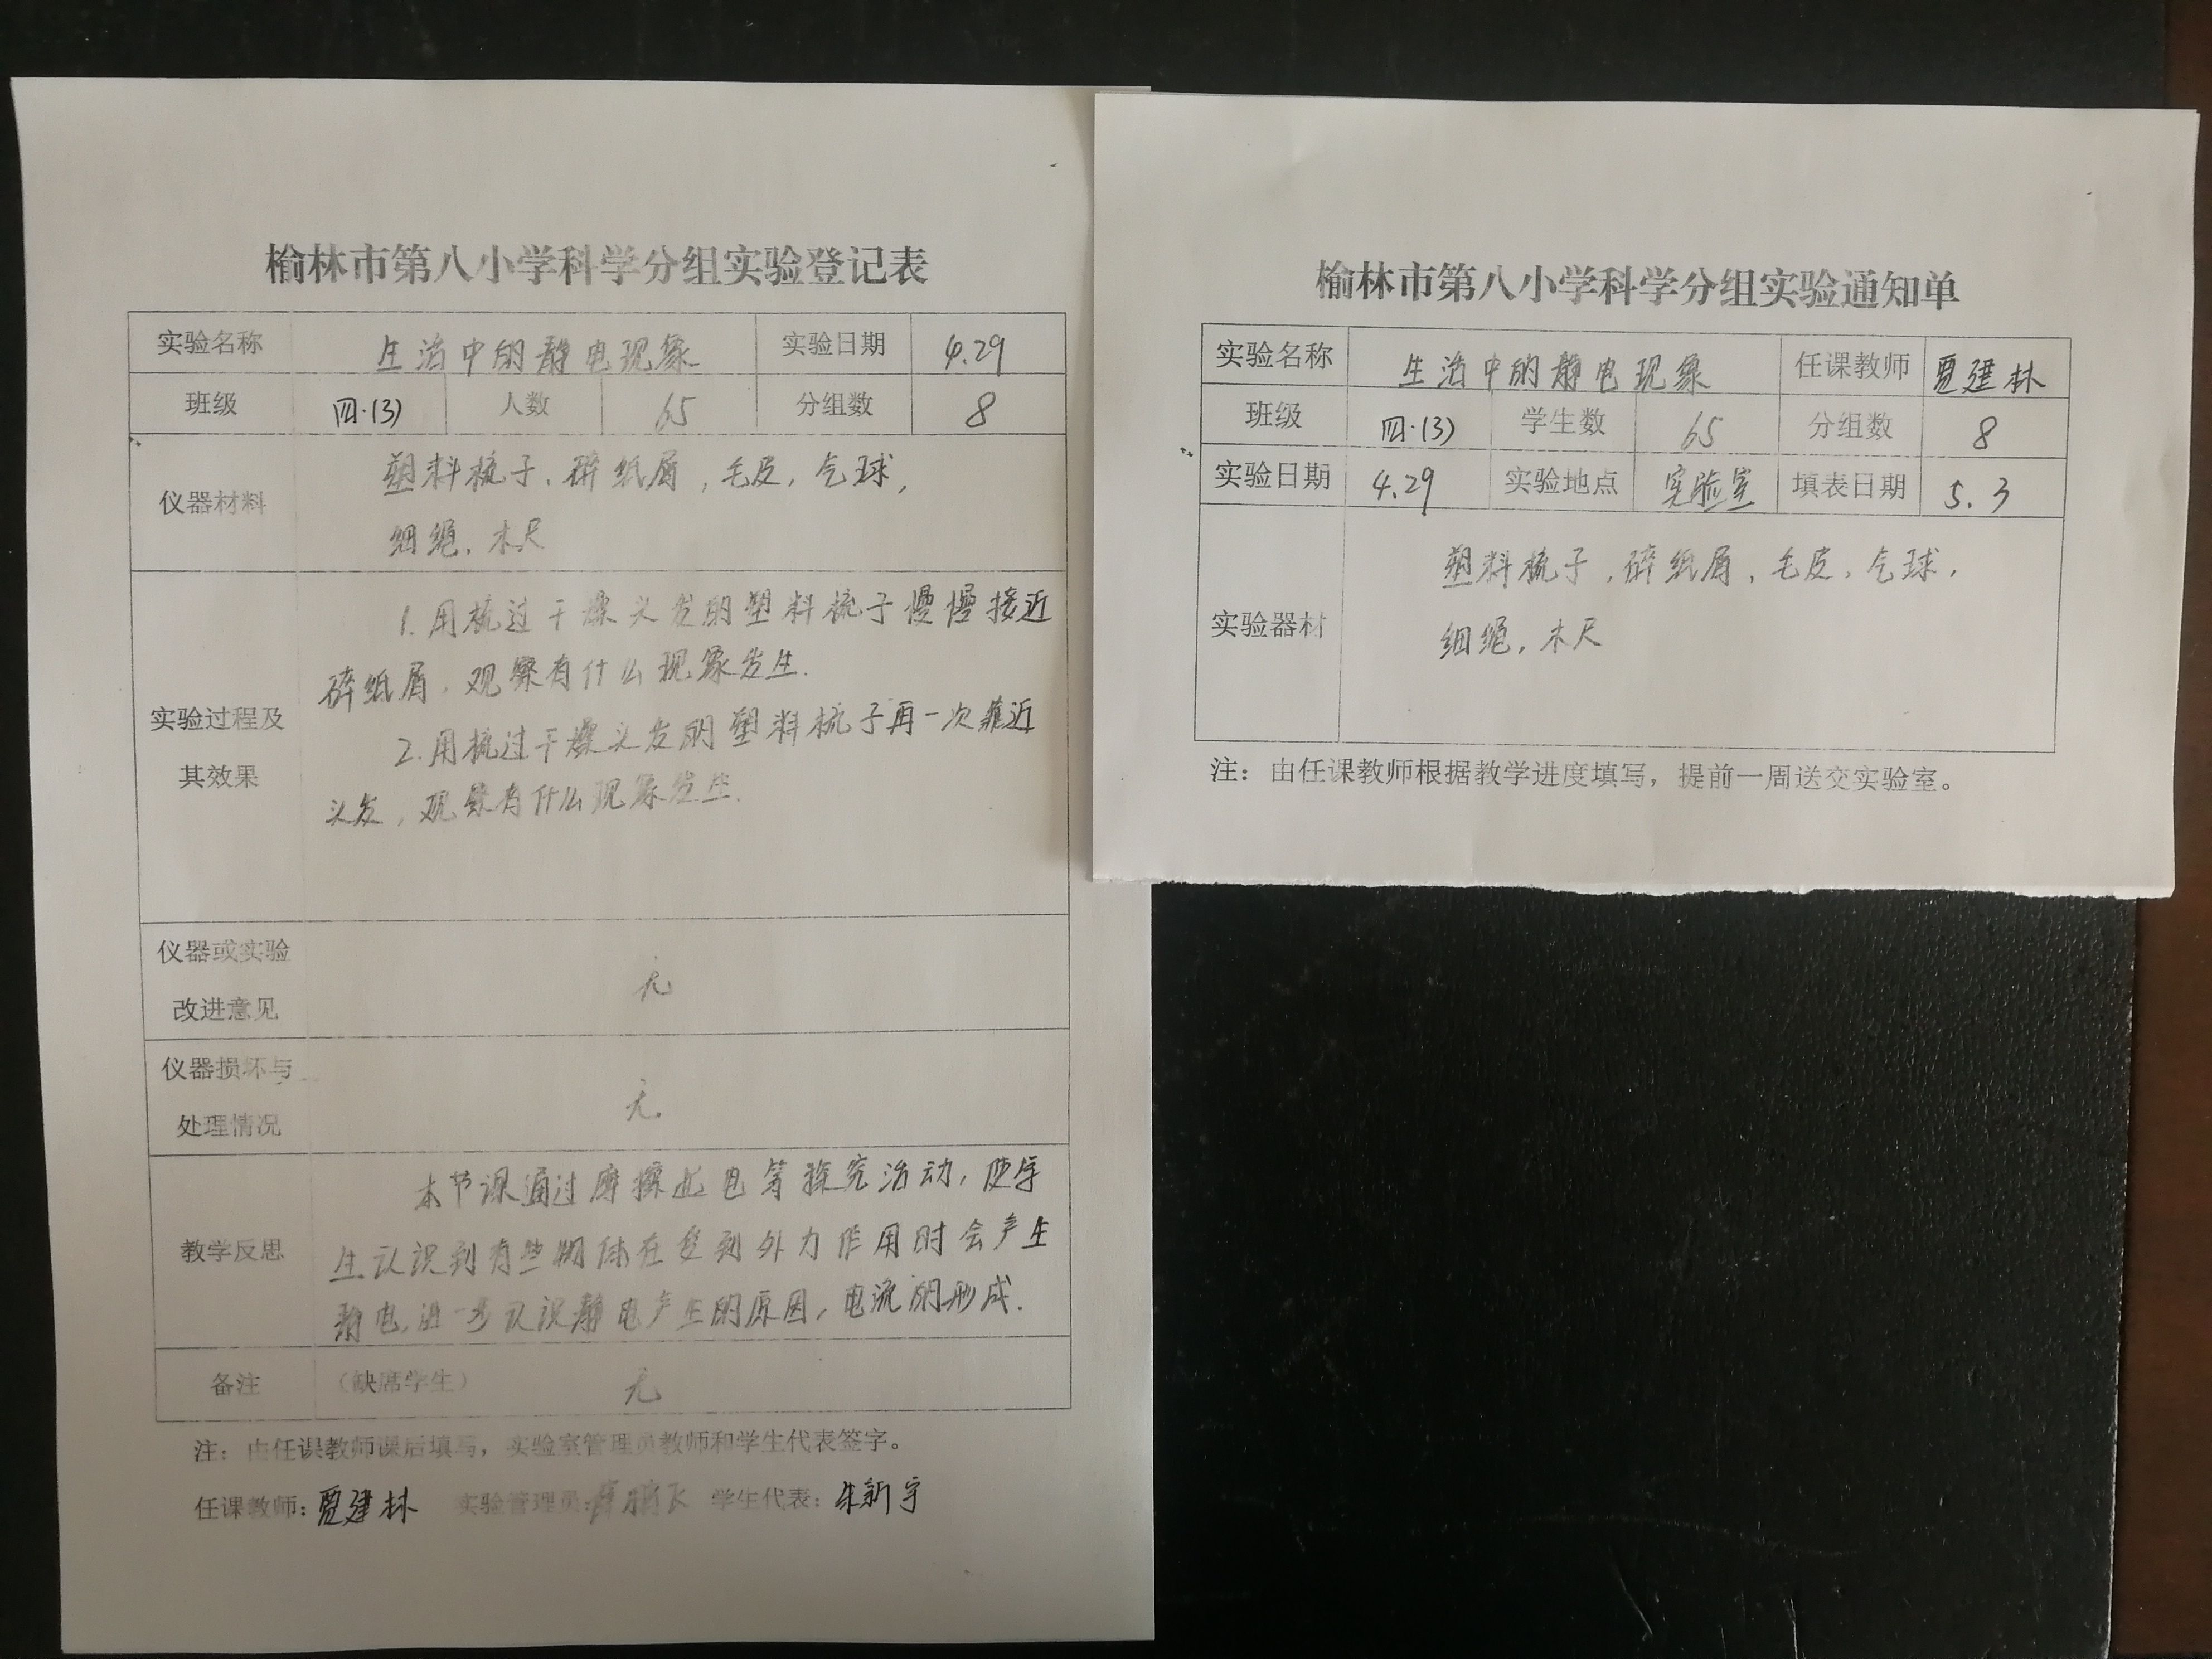 榆林市第八小学科学分组实验登记表
实验名称 生活中的静电现象 实验日期 4.29
班级 四·(3) 人数 65 分组数 8
仪器材料
塑料梳子、碎纸屑，毛皮，气球，
细绳，木尺
实验过程及
其效果
1.用梳过干燥头发的塑料梳子慢慢接近
碎纸屑，观察有什么现象发生.
2.用梳过干燥头发的塑料梳子再一次靠近
头发，观察有什么现象发生.
仪器或实验
改进意见
无
仪器损坏与
处理情况
无
教学反思
本节课通过摩擦起电等探究活动，使学
生认识到有些物体在受到外力作用时会产生
静电，进一步认识静电产生的原因，电流的形成.
备注 （缺席学生） 无
注：由任课教师课后填写，实验室管理员教师和学生代表签字。
任课教师：贾建林 实验管理员： 学生代表：朱新宇
榆林市第八小学科学分组实验通知单
实验名称 生活中的静电现象 任课教师 贾建林
班级 四·(3) 学生数 65 分组数 8
实验日期 4.29 实验地点 实验室 填表日期 5.3
实验器材
塑料梳子，碎纸屑，毛皮，气球，
细绳，木尺
注：由任课教师根据教学进度填写，提前一周送交实验室。